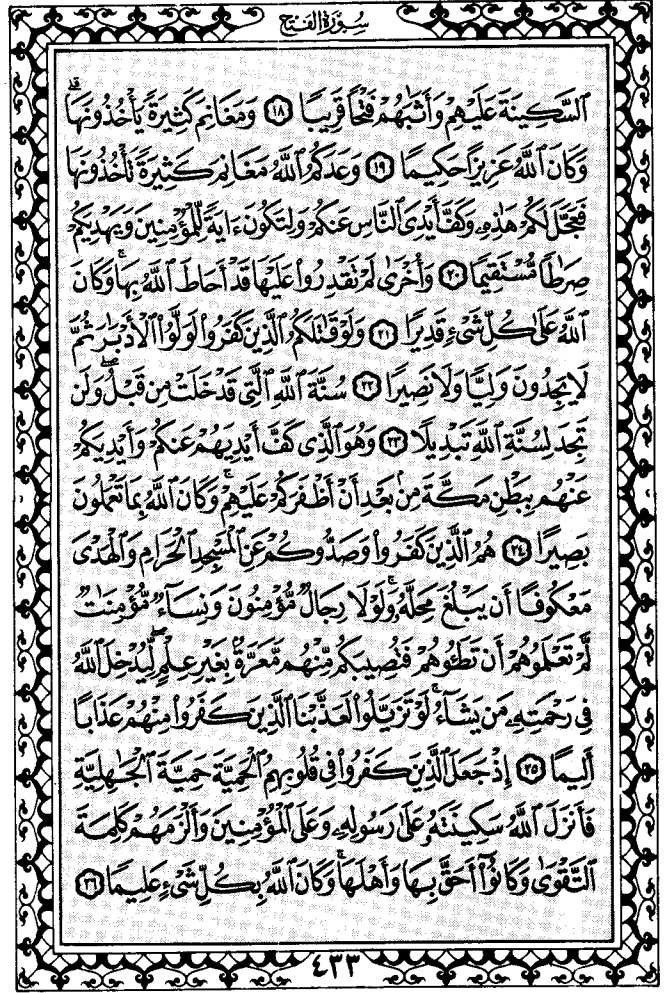 سُورَةُ الفَتْح
ٱلسَّكِينَةَ عَلَيْهِمْ وَأَثَٰبَهُمْ فَتْحًا قَرِيبًا ١٨ وَمَغَانِمَ كَثِيرَةً يَأْخُذُونَهَا ۗ
وَكَانَ ٱللَّهُ عَزِيزًا حَكِيمًا ١٩ وَعَدَكُمُ ٱللَّهُ مَغَانِمَ كَثِيرَةً تَأْخُذُونَهَا
فَعَجَّلَ لَكُمْ هَٰذِهِۦ وَكَفَّ أَيْدِىَ ٱلنَّاسِ عَنكُمْ وَلِتَكُونَ ءَايَةً لِّلْمُؤْمِنِينَ وَيَهْدِيَكُمْ
صِرَٰطًا مُّسْتَقِيمًا ٢٠ وَأُخْرَىٰ لَمْ تَقْدِرُوا۟ عَلَيْهَا قَدْ أَحَاطَ ٱللَّهُ بِهَا ۚ وَكَانَ
ٱللَّهُ عَلَىٰ كُلِّ شَىْءٍ قَدِيرًا ٢١ وَلَوْ قَٰتَلَكُمُ ٱلَّذِينَ كَفَرُوا۟ لَوَلَّوُا۟ ٱلْأَدْبَٰرَ ثُمَّ
لَا يَجِدُونَ وَلِيًّا وَلَا نَصِيرًا ٢٢ سُنَّةَ ٱللَّهِ ٱلَّتِى قَدْ خَلَتْ مِن قَبْلُ ۖ وَلَن
تَجِدَ لِسُنَّةِ ٱللَّهِ تَبْدِيلًا ٢٣ وَهُوَ ٱلَّذِى كَفَّ أَيْدِيَهُمْ عَنكُمْ وَأَيْدِيَكُمْ
عَنْهُم بِبَطْنِ مَكَّةَ مِنۢ بَعْدِ أَنْ أَظْفَرَكُمْ عَلَيْهِمْ ۚ وَكَانَ ٱللَّهُ بِمَا تَعْمَلُونَ
بَصِيرًا ٢٤ هُمُ ٱلَّذِينَ كَفَرُوا۟ وَصَدُّوكُمْ عَنِ ٱلْمَسْجِدِ ٱلْحَرَامِ وَٱلْهَدْىَ
مَعْكُوفًا أَن يَبْلُغَ مَحِلَّهُۥ ۚ وَلَوْلَا رِجَالٌ مُّؤْمِنُونَ وَنِسَآءٌ مُّؤْمِنَٰتٌ
لَّمْ تَعْلَمُوهُمْ أَن تَطَـُٔوهُمْ فَتُصِيبَكُم مِّنْهُم مَّعَرَّةٌۢ بِغَيْرِ عِلْمٍ ۖ لِّيُدْخِلَ ٱللَّهُ
فِى رَحْمَتِهِۦ مَن يَشَآءُ ۚ لَوْ تَزَيَّلُوا۟ لَعَذَّبْنَا ٱلَّذِينَ كَفَرُوا۟ مِنْهُمْ عَذَابًا
أَلِيمًا ٢٥ إِذْ جَعَلَ ٱلَّذِينَ كَفَرُوا۟ فِى قُلُوبِهِمُ ٱلْحَمِيَّةَ حَمِيَّةَ ٱلْجَٰهِلِيَّةِ
فَأَنزَلَ ٱللَّهُ سَكِينَتَهُۥ عَلَىٰ رَسُولِهِۦ وَعَلَى ٱلْمُؤْمِنِينَ وَأَلْزَمَهُمْ كَلِمَةَ
ٱلتَّقْوَىٰ وَكَانُوٓا۟ أَحَقَّ بِهَا وَأَهْلَهَا ۚ وَكَانَ ٱللَّهُ بِكُلِّ شَىْءٍ عَلِيمًا ٢٦
٤٣٣